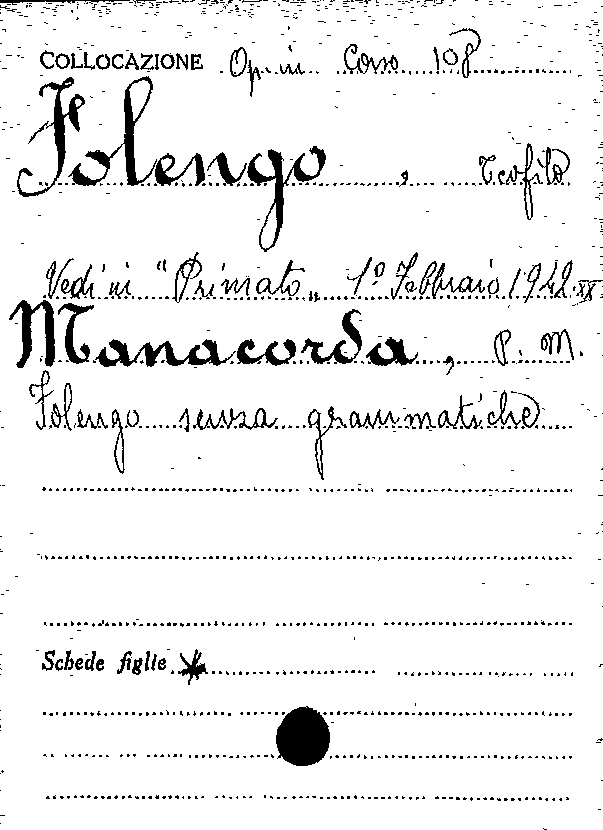 COLLOCAZIONE Op. in Corso 108
Folengo, Teofilo
Vedi in "Primato„ 1º Febbraio 1942·XX
Manacorda, P. M.
Folengo senza grammatiche
Schede figlie